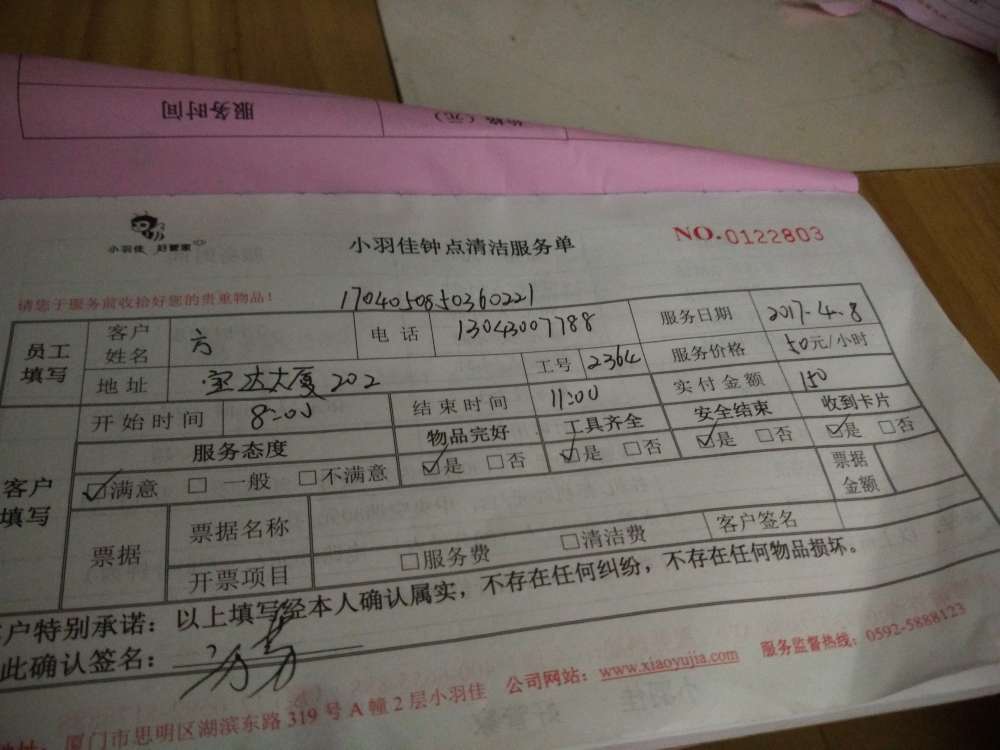 服务时间
价格（元）
小羽佳 好管家
小羽佳钟点清洁服务单
NO.0122803
请您于服务前收拾好您的贵重物品！
1704050850360221
员工填写
客户姓名 方 电话 13043007788 服务日期 2017.4.8
地址 宝达大厦202 工号 2364 服务价格 50元/小时
开始时间 8:00 结束时间 11:00 实付金额 150
客户填写
服务态度 物品完好 工具齐全 安全结束 收到卡片
☑满意 □一般 □不满意 ☑是 □否 ☑是 □否 ☑是 □否 ☑是 □否
票据 票据名称 票据金额
开票项目 □服务费 □清洁费 客户签名
户特别承诺：以上填写经本人确认属实，不存在任何纠纷，不存在任何物品损坏。
此确认签名：
厦门市思明区湖滨东路319号A幢2层小羽佳 公司网站：www.xiaoyujia.com 服务监督热线：0592-5888123